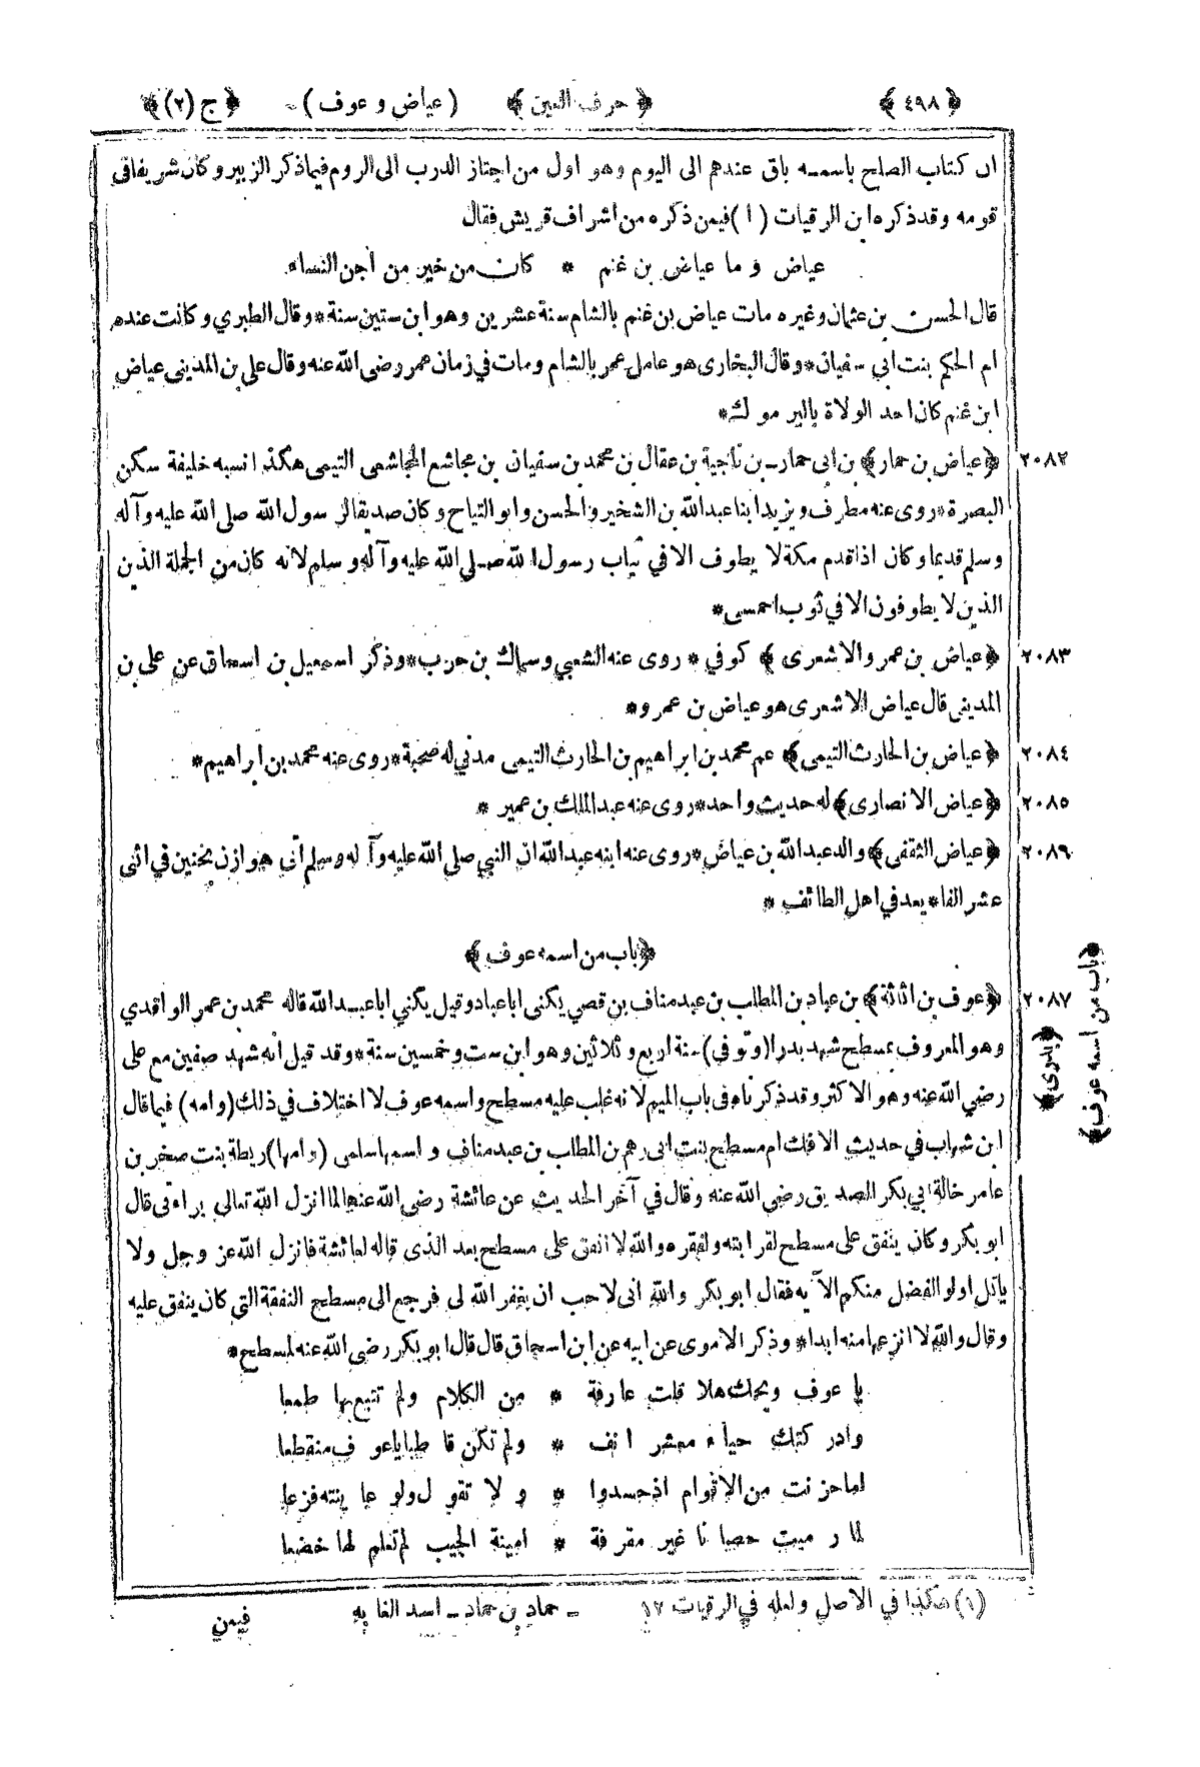 ﴿ ٤٩٨ ﴾ ﴿ حرف العين ﴾ ( عياض و عوف ) - ﴿ ج (٢) ﴾
ان كتاب الصلح باسمه باق عندهم الى اليوم وهو اول من اجتاز الدرب الى الروم فيماذكر الزبير وكان شريفا في
قومه وقد ذكره ابن الرقيات ( ١ ) فيمن ذكره من اشراف قريش فقال
عياض و ما عياض بن غنم * كان من خير من أجن النساء
قال الحسن بن عثمان وغيره مات عياض بن غنم بالشام سنة عشرين وهو ابن ستين سنة * وقال الطبري وكانت عنده
ام الحكم بنت ابي سفيان * وقال البخارى هو عامل عمر بالشام ومات في زمان عمر رضى الله عنه وقال على بن المديني عياض
ابن غنم كان احد الولاة باليرموك *
٢٠٨٢ ﴿ عياض بن حمار ﴾ بن ابى حمار بن ناجية بن عقال بن محمد بن سفيان بن مجاشع المجاشعى التيمى هكذا انسبه خليفة سكن
البصرة * روى عنه مطرف ويزيد ابنا عبدالله بن الشخير والحسن وابو التياح وكان صديقا لرسول الله صلى الله عليه وآله
وسلم قديما وكان اذا قدم مكة لا يطوف الا في ثياب رسول الله صلى الله عليه وآله وسلم لانه كان من الجملة الذين
الذين لا يطوفون الا في ثوب احمسى *
٢٠٨٣ ﴿ عياض بن عمرو الاشعرى ﴾ كوفي * روى عنه الشعبي وسماك بن حرب * وذكر اسمعيل بن اسحاق عن على بن
المديني قال عياض الاشعرى هو عياض بن عمرو *
٢٠٨٤ ﴿ عياض بن الحارث التيمى ﴾ عم محمد بن ابراهيم بن الحارث التيمى مدني له صحبة * روى عنه محمد بن ابراهيم *
٢٠٨٥ ﴿ عياض الانصارى ﴾ له حديث واحد * روى عنه عبد الملك بن عمير *
٢٠٨٩ ﴿ عياض الثقفى ﴾ والد عبدالله بن عياض * روى عنه ابنه عبدالله ان النبي صلى الله عليه وآله وسلم أتى هوازن بحنين في اثنى
عشر الفا * يعد في اهل الطائف *
﴿ باب من اسمه عوف ﴾
﴿ باب من اسمه عوف ﴾
٢٠٨٧ ﴿ عوف بن اثاثة ﴾ بن عباد بن المطلب بن عبد مناف بن قصي يكنى اباعباد وقيل يكنى اباعبدالله قاله محمد بن عمر الواقدي
﴿ بدرى ﴾
وهو المعروف بمسطح شهد بدرا (وتوفي) سنة اربع وثلاثين وهو ابن ست وخمسين سنة * وقد قيل انه شهد صفين مع على
رضي الله عنه وهو الاكثر وقد ذكرناه في باب الميم لانه غلب عليه مسطح واسمه عوف لا اختلاف في ذلك (وامه) فيما قال
ابن شهاب في حديث الافك ام مسطح بنت ابى رهم بن المطلب بن عبد مناف و اسمها سلمى (وامها) ريطة بنت صخر بن
عامر خالة ابي بكر الصديق رضي الله عنه وقال في آخر الحديث عن عائشة رضى الله عنها لما انزل الله تعالى براءتى قال
ابو بكر وكان ينفق على مسطح لقرابته ولفقره والله لا انفق على مسطح بعد الذى قاله لعائشة فانزل الله عز وجل ولا
يأتل اولو الفضل منكم الآيه فقال ابو بكر والله انى لاحب ان يغفر الله لى فرجع الى مسطح النفقة التي كان ينفق عليه
وقال والله لا انزعها منه ابدا * وذكر الاموى عن ابيه عن ابن اسحاق قال قال ابو بكر رضى الله عنه لمسطح *
يا عوف ويحك هلا قلت عارفة * من الكلام ولم تتبع بها طمعا
وادركتك حياء معشر انف * ولم تكن قاطبا ياعوف منقطعا
لما حزنت من الاقوام اذ حسدوا * ولا تقول ولو عاينته فزعا
لما رميت حصانا غير مقرفة * امينة الجيب لم تعلم لها خضعا
(١) هكذا في الاصل ولعله في الرقيات ١٢ - حماد بن حماد - اسد الغابه
فيمن